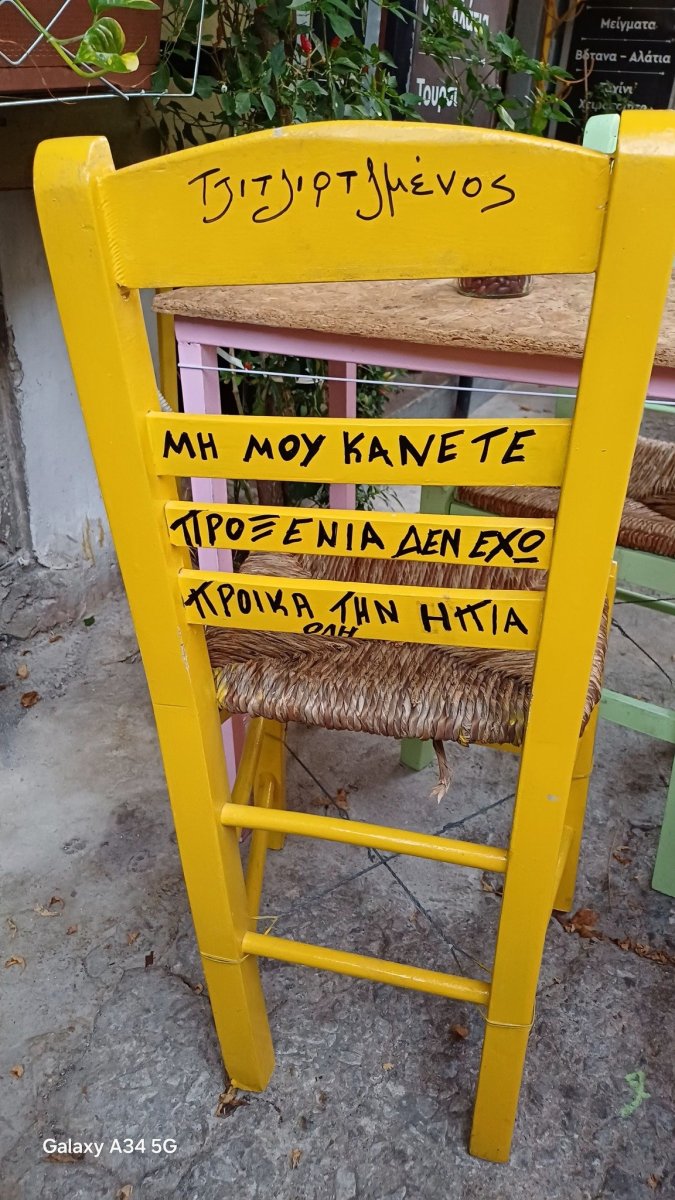 Μείγματα
Βότανα - Αλάτια
Τουρσί
Τζιτζιφιτζμένος
ΜΗ ΜΟΥ ΚΑΝΕΤΕ
ΠΡΟΞΕΝΙΑ ΔΕΝ ΕΧΩ
ΠΡΟΙΚΑ ΤΗΝ ΗΠΙΑ
ΟΛΗ
Galaxy A34 5G